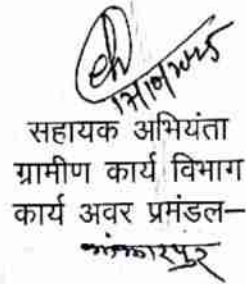 सहायक अभियंता
ग्रामीण कार्य विभाग
कार्य अवर प्रमंडल–
झंझारपुर